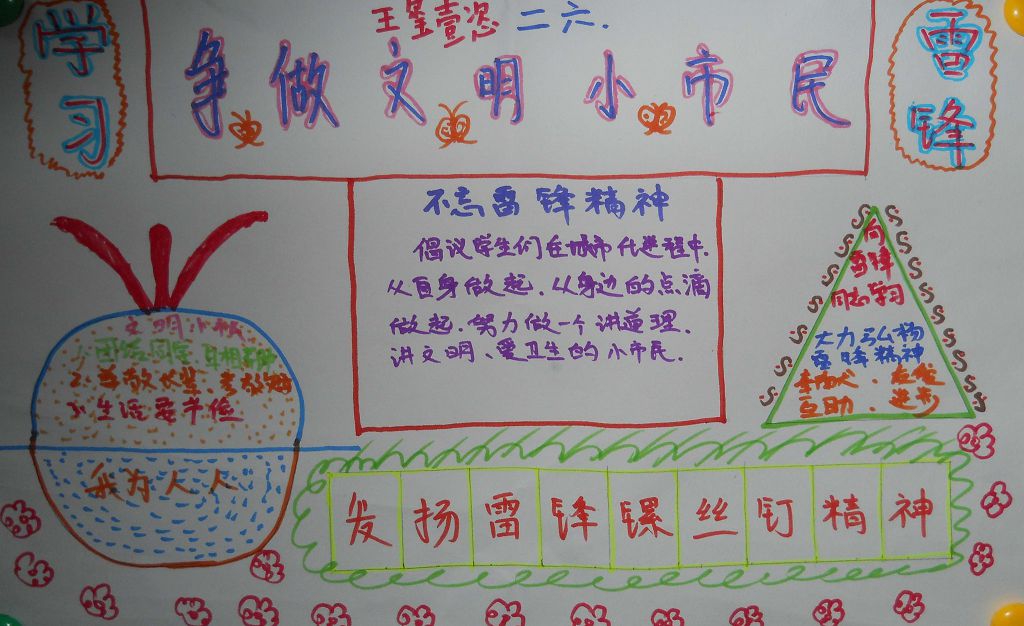 学习
雷锋
王 壹 二六.
争做文明小市民
不忘雷锋精神
倡议学生们在城市化进程中.
从自身做起.从身边的点滴
做起.努力做一个讲道理.
讲文明、爱卫生的小市民.
向
雷锋
同志学习
大力弘杨
雷锋精神
互助.进步
文明小
1.团结同学
2.尊敬长辈.
3.生活要节俭
我为人人
发扬雷锋螺丝钉精神